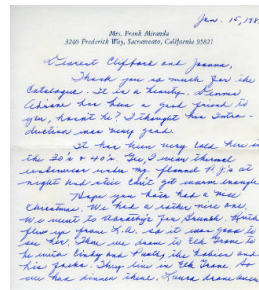 Jan. 15, 198
Mrs. Frank Miranda
3240 Frederick Way, Sacramento, California 95821
Dearest Clifford and Joanna,
Thank you so much for the
Catalogue. It is a beauty.
has been a good friend to
you, hasn't he? I thought his Intro-
duction was very good.
It has been very cold here in
the 30's & 40's. Yes, I wear thermal
underwear under my flannel P.J's at
night and still can't get warm enough.
Hope you both had a nice
Christmas. We had a rather nice one.
We went to for brunch.
flew up from L.A. so it was good to
see him. Then we drove to Elk Grove to
be with Cindy and the babies and
his folks. They live in Elk Grove. So
we had dinner there. Laura drove